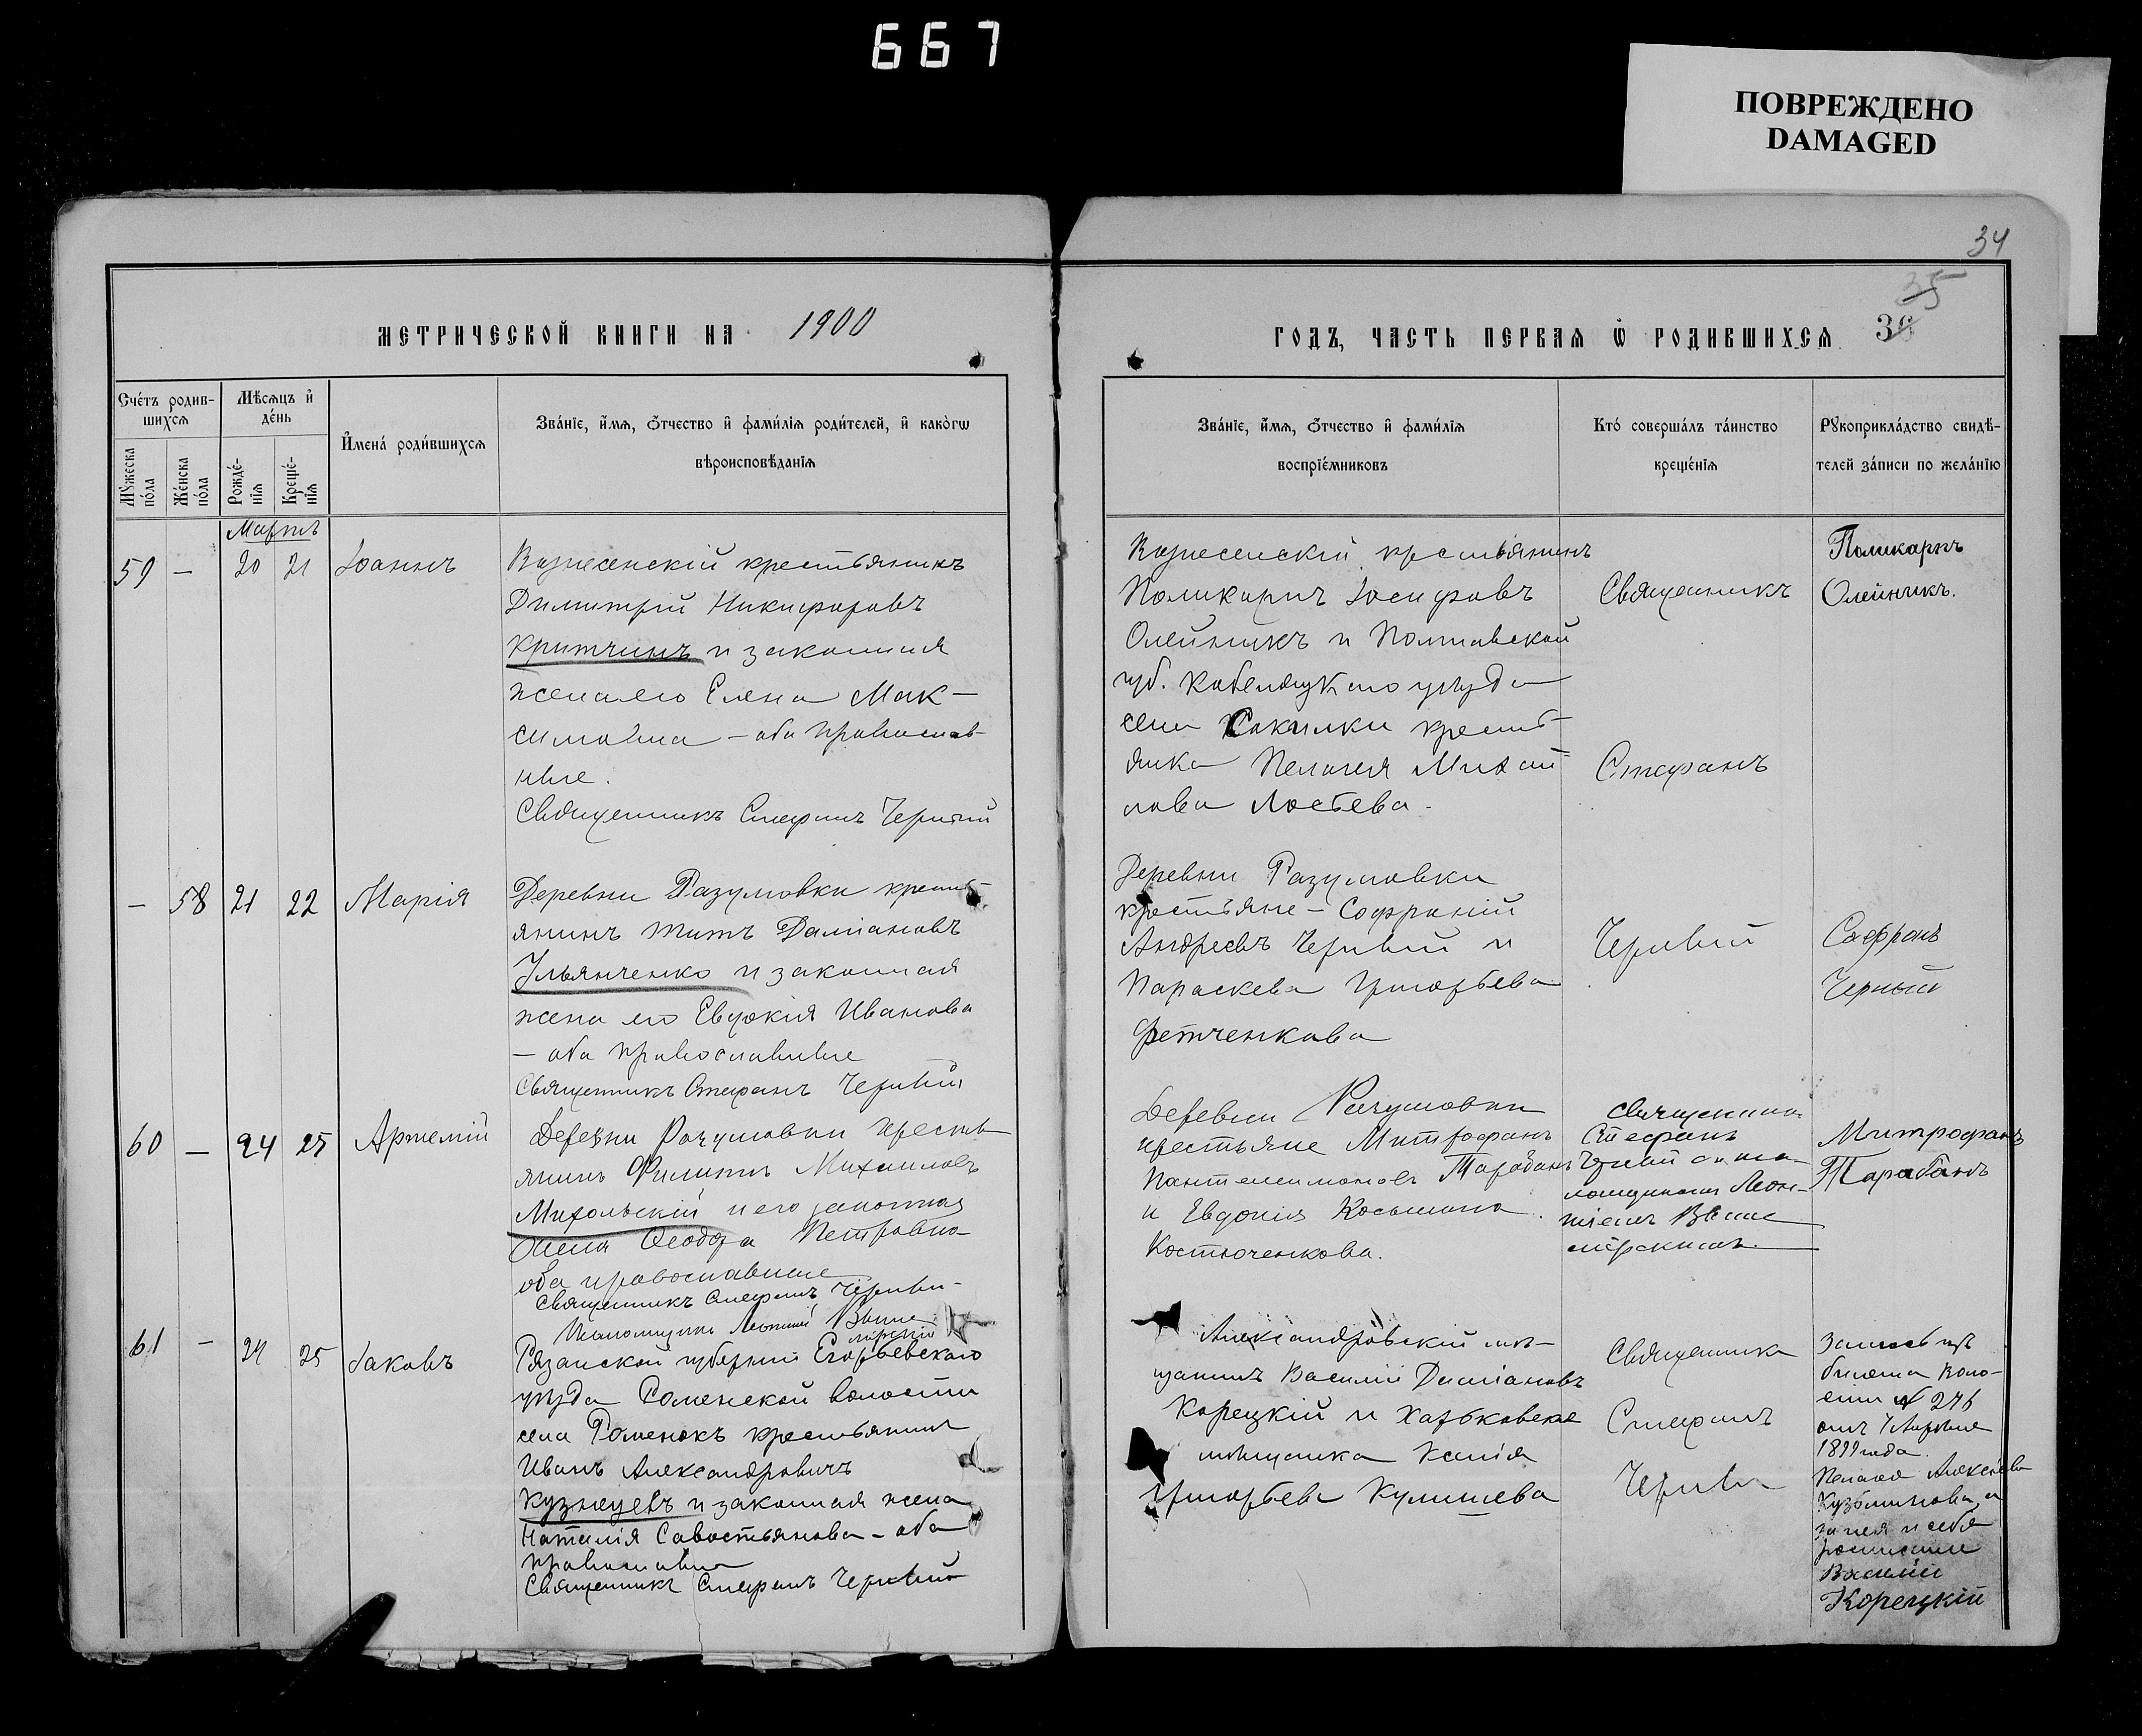 667
ПОВРЕЖДЕНО
DAMAGED
34
35
36
МЕТРИЧЕСКОЙ КНИГИ НА 1900
ГОДЪ, ЧАСТЬ ПЕРВАЯ Ѿ РОДИВШИХСЯ
Сче́тъ родившихся
Мужеска по́ла
Же́нска по́ла
Мѣ́сяцъ и де́нь
Рожде́нія
Креще́нія
Имена́ роди́вшихся
Зва́ніе, и́мя, о́тчество и фами́лія роди́телей, и како́гѡ
вѣроисповѣ́данія
Зва́ніе, и́мя, о́тчество и фами́лія
воспріе́мниковъ
Кто́ соверша́лъ та́инство
креще́нія
Рукоприкла́дство свидѣ́-
телей за́писи по жела́нію
Мартъ
59 — 20 21 Іоаннъ
Вознесенскій крестьянинъ
Димитрій Никифоровъ
Критчинъ и законная
жена его Елена Мак-
симова — оба православ-
ные.
Священникъ Стефанъ Черный
Вознесенскій крестьянинъ
Поликарпъ Іосифовъ
Олейникъ и Полтавской
губ. Кобеляцкаго уѣзда
села Сокилки кресть-
янка Пелагея Михай
лова Лосева.
Священникъ
Стефанъ
Поликарпъ
Олейникъ.
— 58 21 22 Марія
Деревни Разумовки кресть-
янинъ Титъ Даміановъ
Ульянченко и законная
жена его Евдокія Иванова
— оба православные
Священникъ Стефанъ Черный
Деревни Разумовки
крестьяне — Софроній
Андреевъ Черный и
Параскева Григорьева
Фетченкова
Черный
Софронъ
Черный
60 — 24 25 Артемій
Деревни Разумовки кресть
янинъ Филиппъ Михаиловъ
Михольскій и его законная
жена Ѳеодора Петровна
оба православные
Священникъ Стефанъ Черный
Псаломщикъ Леонтій
Деревни Разумовки
крестьяне Митрофанъ
Пантелеимоновъ Тарабанъ
и Евдокія Косьмина
Костюченкова.
Священникъ
Стефанъ
Черный
Митрофанъ
Тарабанъ
61 — 24 25 Іаковъ
Рязанской губерніи Егорьевскаго
уѣзда Раменской волости
села Раменокъ крестьянинъ
Иванъ Александровичъ
Кузнецевъ и законная жена
Наталія Савостьянова — оба
православные
Священникъ Стефанъ Черный
Александровскій мѣ-
щанинъ Василій Даміановъ
Корецкій и Харьковская
мѣщанка Ксенія
Григорьева Кулишева
Священникъ
Стефанъ
Черный
Запись изъ
билета воло-
сти № 276
отъ 7 Апрѣля
1899 года.
Пелагея Алексѣева
Кузьминова, а
за нея и себя
росписался
Василій
Корецкій